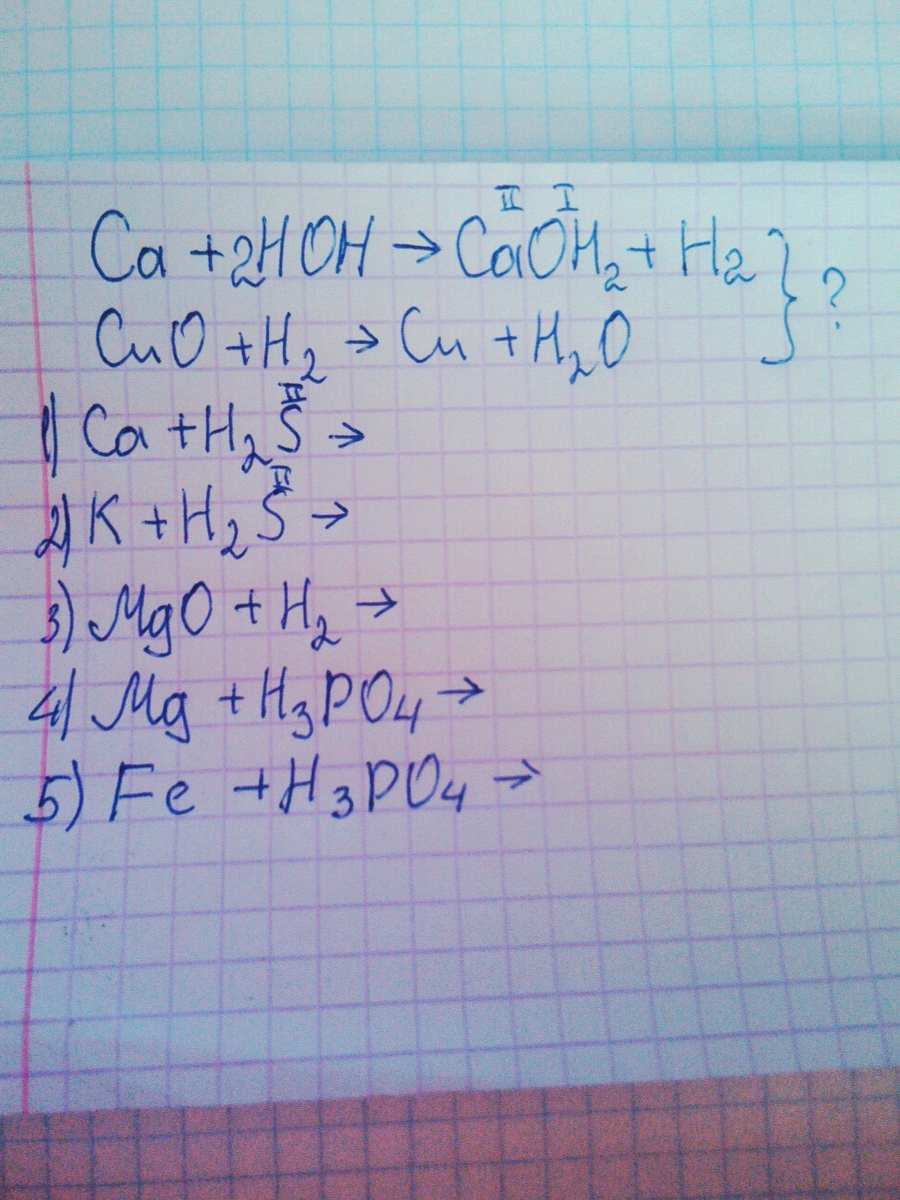 II I
Ca + 2HOH → CaOH₂ + H₂ } ?
CuO + H₂ → Cu + H₂O
II
1) Ca + H₂S →
II
2) K + H₂S →
3) MgO + H₂ →
4) Mg + H₃PO₄ →
5) Fe + H₃PO₄ →